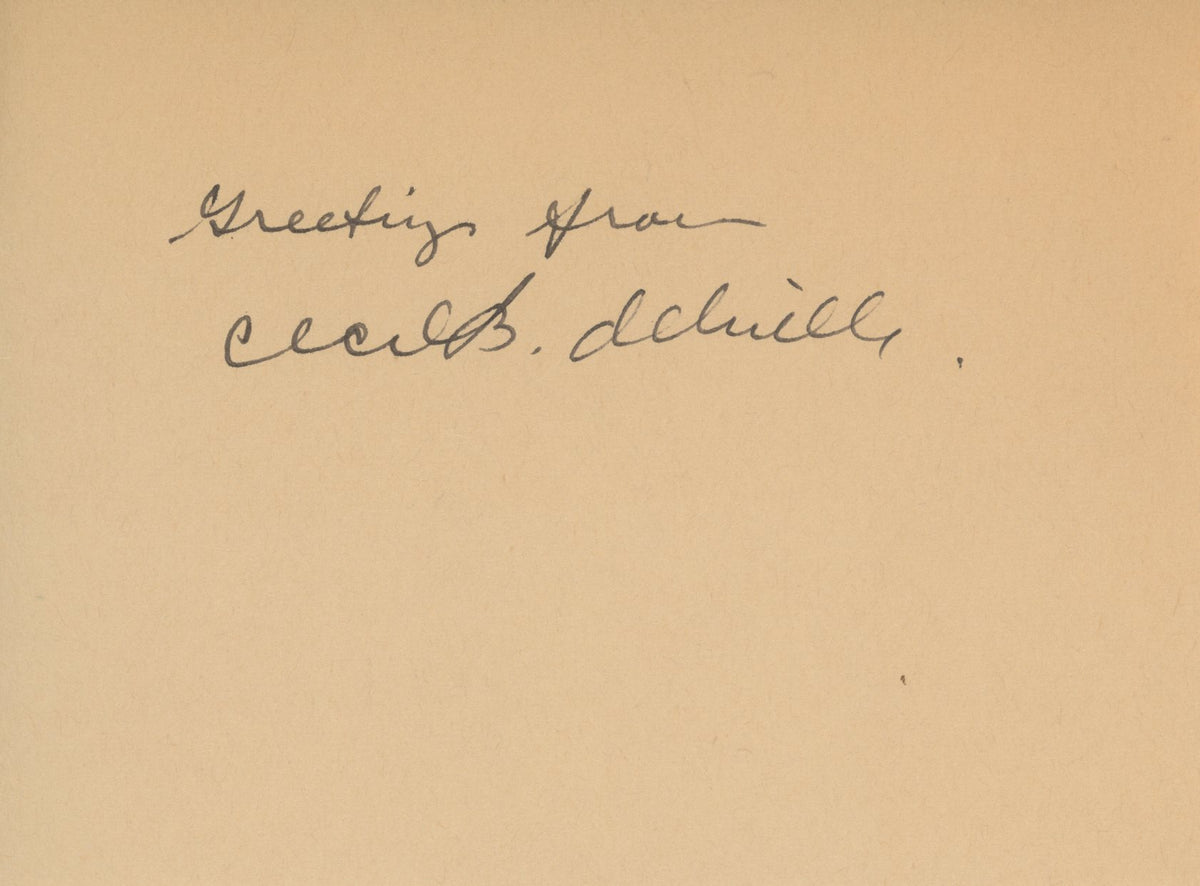 Greetings from
Cecil B. deMille.